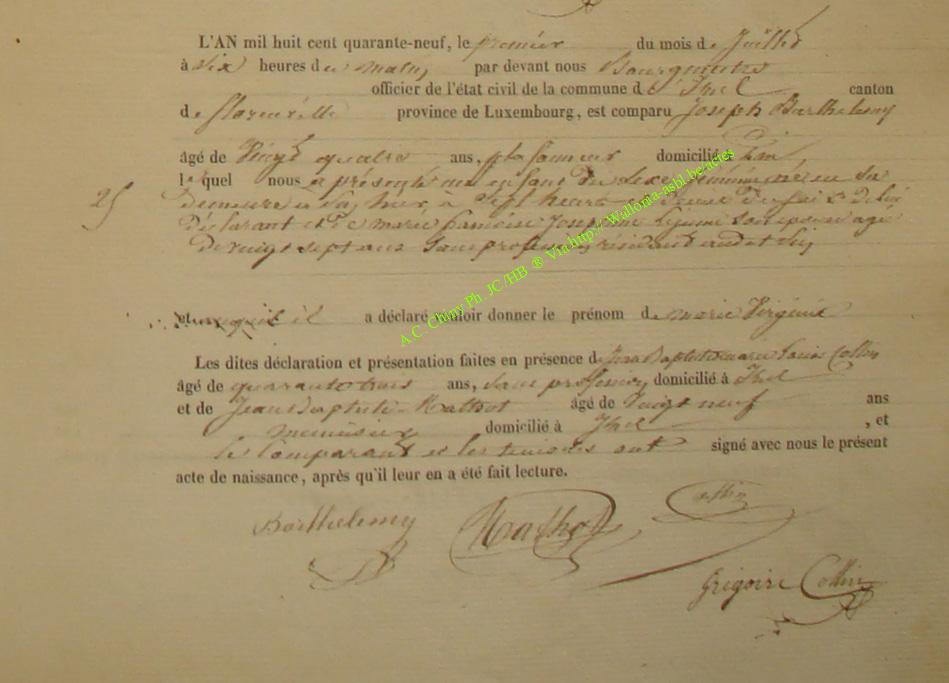 L'AN mil huit cent quarante-neuf, le premier du mois de Juillet
à dix heures du matin, par devant nous Bourgmestre
officier de l'état civil de la commune d Izel canton
de florenville province de Luxembourg, est comparu Joseph Barthelemy
âgé de Vingt quatre ans, plafonneur domicilié à
le quel nous a présenté un enfant du Sexe féminin né en sa
25 demeure à sept heures de lui
Déclarant et de marie françoise Josephine Lejeune son épouse agée
de vingt sept ans Sans profession residant audit
et a déclaré vouloir donner le prénom de marie Virginie
Les dites déclaration et présentation faites en présence de Jean Baptiste marie Louis Collin
âgé de quarante trois ans, Sans profession domicilié à Izel
et de Jean Baptiste Mathot âgé de Vingt neuf ans
menuisier domicilié à Izel , et
le Comparant et les temoins ont signé avec nous le présent
acte de naissance, après qu'il leur en a été fait lecture.
Barthelemy Mathot Collin
Grégoire Collin
A.C. Chiny Ph. JC/HB ® Via http://Wallonia-asbl.be/actes